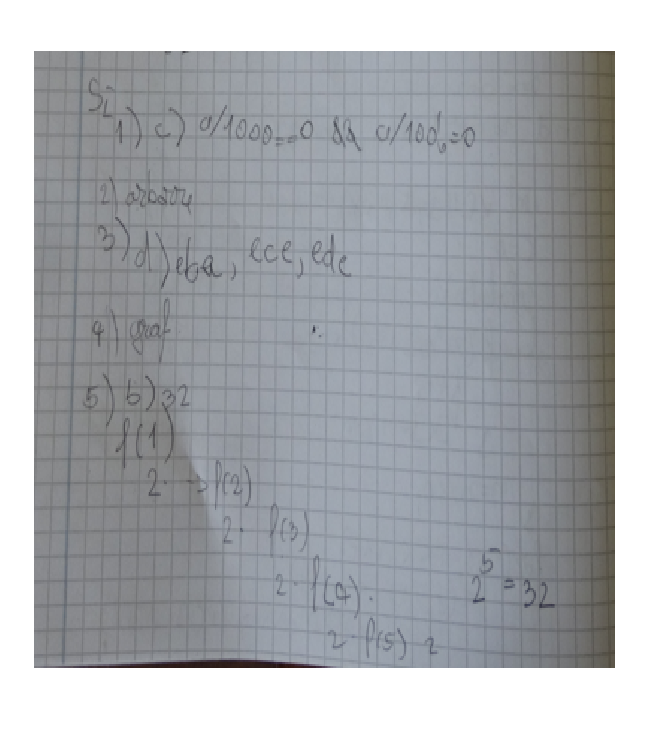 SI
1) c) a/1000==0 && a/100!=0
2) arbori
3) d) eba, ece, ede
4) graf
5) b) 32
f(1)
2· → f(2)
2· f(3)
2· f(4).
2^5 = 32
2· f(5) 2